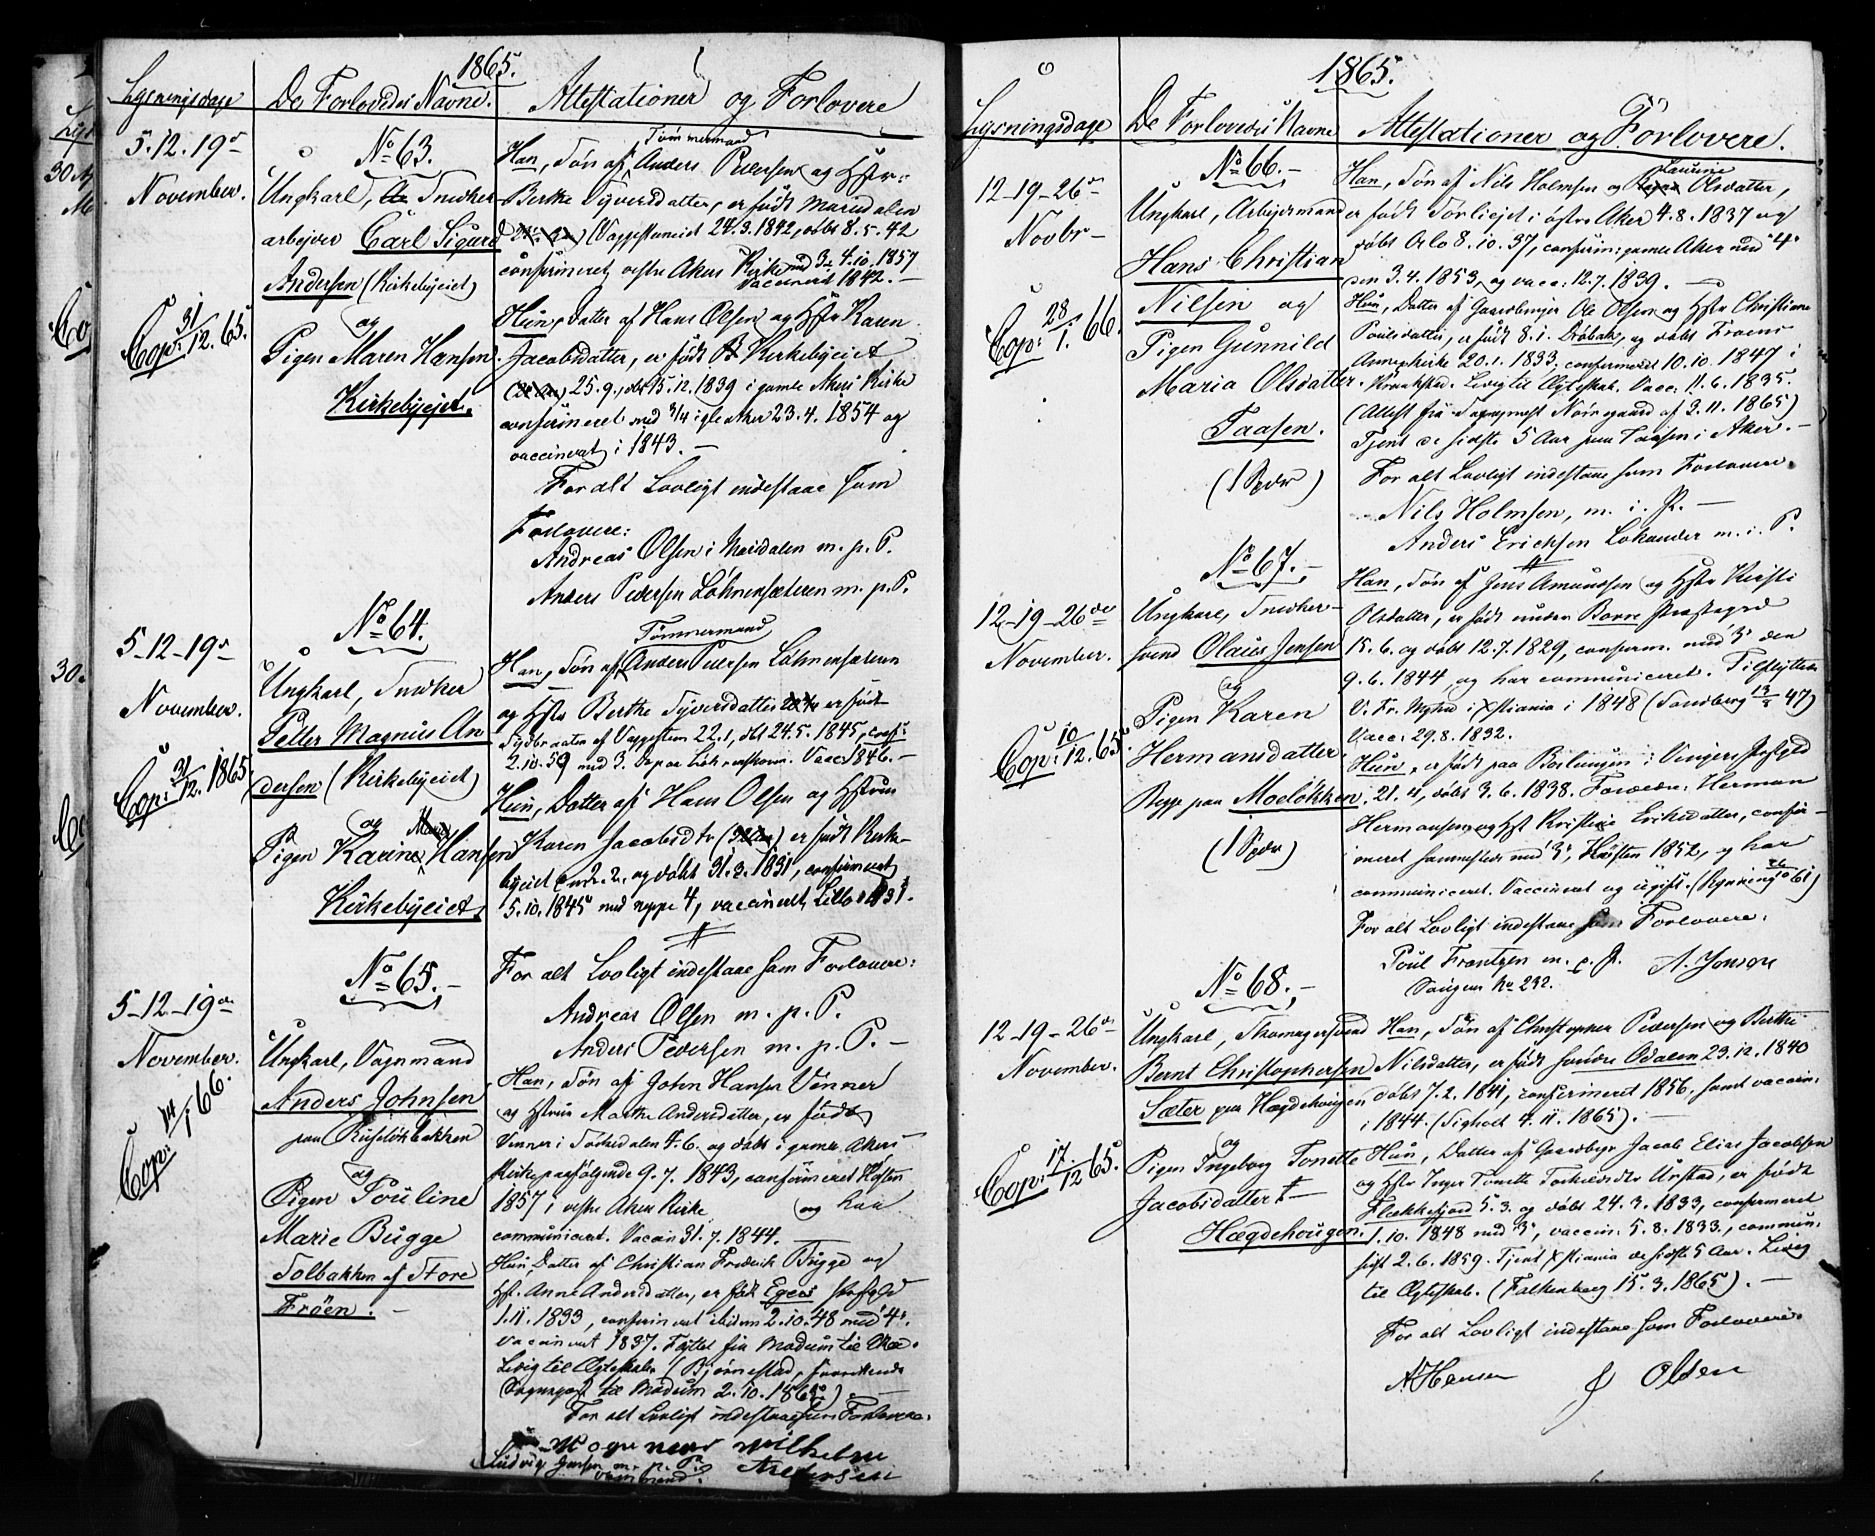 1865.
Lysningsdage
De Forlovedes Navne.
Attestationer og Forlovere
5.12.19de
November.
No 63.
Ungkarl, Snedker
arbejder Carl Sigurd
Andersen (Kirkebyeiet)
og
Pigen Maren Hansen
Kirkebyejet.
Cop: 31/12. 65.
Tömmermand
Han, Søn af Anders Pedersen og Hstr:
Berthe Syversdatter, er født Maridalen
(Vaggesteneiet 24.3.1842, døbt 8.5.42
confirmeret vestre Akers Kirke med 3. 4.10.1857
vaccineret 1842. —
Hun, Datter af Hans Olsen og Hstr Karen
Jacobsdatter, er født Kirkebyeiet
25.9., dbt 15.12.1839 i gamle Akers Kirke
confirmeret med 3/4 i gle Aker 23.4.1854 og
vaccineret i 1843. —
For alt Lovligt indestaae som
Forlovere:
Andreas Olsen i Maridalen m. p. P.
Anders Pedersen Löhnensæteren m. p. P.
5-12-19de
November.
No 64.
Ungkarl, Snedker
Petter Magnus An
dersen (Kirkebyeiet)
og
Pigen Karine Marie Hansen
Kirkebyeiet,
Cop: 31/12. 1865
Tømmermand
Han, Søn af Anders Pedersen Löhnensæteren
og Hstr Berthe Syversdatter er født
af Vaggesteen 22.1, dbt 24.5.1845, conf:
2.10.59 med 3. Vacc 1846. —
Hun, Datter af Hans Olsen og Hstru
Karen Jacobsdtr er født Kirke-
byeiet 2. og døbt 31.2.1831, confirmeret
5.10.1845 med noppe 4, vaccineret Lillo 1831.
For alt Lovligt indestaae som Forlovere:
Andreas Olsen m. p. P.
Anders Pedersen m. p. P. —
5-12-19de
November.
No 65. —
Ungkarl, Vognmand
Anders Johnsen
paa Ruseløkbakken
og
Pigen Pouline
Marie Bugge
Solbakken af Store
Frøen. —
Cop: 14/1 66.
Han, Søn af John Hansen Venner
og Hstrue Marthe Andersdatter, er født
Venner i Sørkedalen 4.6. og døbt i gamle Akers
Kirke paafølgende 9.7.1843, confirmeret Høsten
1857 i vestre Akers Kirke, og har
communiceret. Vaccin 31.7.1844.
Hun, Datter af Christian Frederik Bugge og
Hst. Anne Andersdatter, er født Egers Prstgjld
1.11.1833, confirmeret ibidem 2.10.48 med "4".
vaccineret 1837. Flyttet fra Modum til Aker.
Ledig til Ægteskab. (Bjørnestad,
Sognepræst til Modum 2.10.1865) —
For alt Lovligt indestaae som Forlovere:
Wilhelm
Ludvig Jensen m. p. P. Andersen
Vognmand.
1865.
Lysningsdage
De Forlovedes Navne
Attestationer og Forlovere.
12-19-26de
Novbr —
No 66. —
Ungkarl, Arbejdsmand
Hans Christian
Nilsen og
Pigen Gunnild
Maria Olsdatter.
Taasen.
(1 Spdlr)
Cop: 28/1. 66.
Laurine
Han, Søn af Nils Holmsen og Olsdatter,
er født Torshejet i østre Aker 4.8.1837 og
døbt Oslo 8.10.37, confirm: gamle Aker med "4"
den 3.4.1853, og vacc: 12.7.1839. —
Hun, Datter af Gaardbruger Ole Olsen og Hstr Christiane
Poulsdatter, er født 8.1. Drøbak, og døbt Froens
Annexkirke 20.1.1833, confirmeret 10.10.1847 i
Kraakstad. Ledig til Ægteskab. Vacc: 11.6.1835.
(Attest fra Sogneprest Nörregaard af 3.11.1865)
Tjent de sidste 5 Aar paa Taasen i Aker. —
For alt Lovligt indestaae som Forlovere.
Nils Holmsen, m. i. P. —
Anders Erichsen Løkander m. i. P.
12-19-26de
November.
No 67. —
Ungkarl, Snedker-
svend Olaus Jensen
og
Pigen Karen
Hermansdatter
Begge paa Moeløkken.
(1 Spdlr)
Cop: 10/12. 65.
Han, Søn af Jens Amundsen og Hstr Kirsti
Olsdatter, er født under Borre Præstegjd
15.6. og døbt 12.7.1829, conferm. med 3. den
9.6.1844 og har communiceret. Tilflyttet
V. Fr. Mghd i Xstiania i 1848 (Sandberg 13/8 47)
Vacc: 29.8.1832.
Hun, er født paa i Vinger Prstgjld
21.4, døbt 3.6.1838. Forældre: Herman
Hermansen og Hst Kristine Eriksdatter, confir-
meret sammesteds med 3., Høsten 1852, og har
communiceret. Vaccineret og ugift. (Rynning 61)
For alt Lovligt indestaae som Forlovere:
Poul Frantzen m. p. P. A. Jensen
Saugene No 232.
12-19-26de
November.
No 68. —
Ungkarl, Skomagersvend
Bernt Christophersen
Sæter paa Hægdehougen
og
Pigen Ingeborg Tonette
Jacobsdatter —
Hægdehougen.
Cop: 17/12 65.
Han, Søn af Christopher Pedersen og Berthe
Nilsdatter, er født søndre Odalen 23.12.1840
døbt 7.2.1841, confermeret 1856, samt vaccin:
i 1844. (Sigholt 4.11.1865). —
Hun, Datter af Gaardbgr Jacob Elias Jacobsen
og Hstr Inger Tonette Torkildsdtr Urstad, er født
Flekkefjord 5.3. og døbt 24.3.1833, confermeret
1.10.1848 med 3., vaccin: 5.8.1833, commun:
sidst 2.6.1859. Tjent Xstiania de sidste 5 Aar. Ledig
til Ægteskab. (Falkenberg 15.3.1865). —
For alt Lovligt indestaae som Forlovere.
A Hansen J Olsen